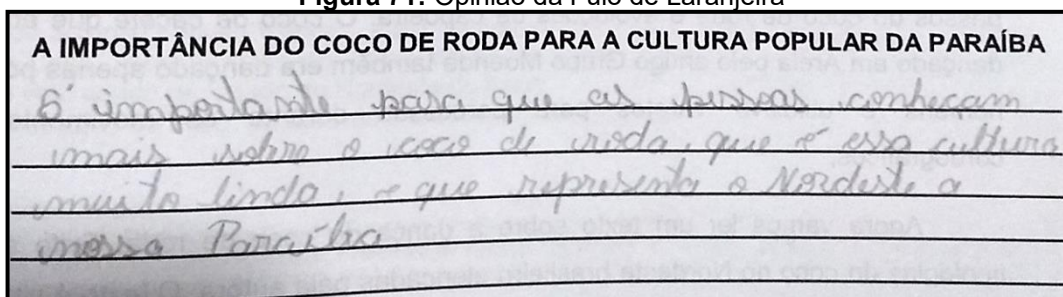 Figura 71: Opinião da Fulô de Laranjeira
A IMPORTÂNCIA DO COCO DE RODA PARA A CULTURA POPULAR DA PARAÍBA
É importante para que as pessoas conheçam
mais sobre o coco de roda, que é essa cultura
muito linda, e que representa o Nordeste a
nossa Paraíba